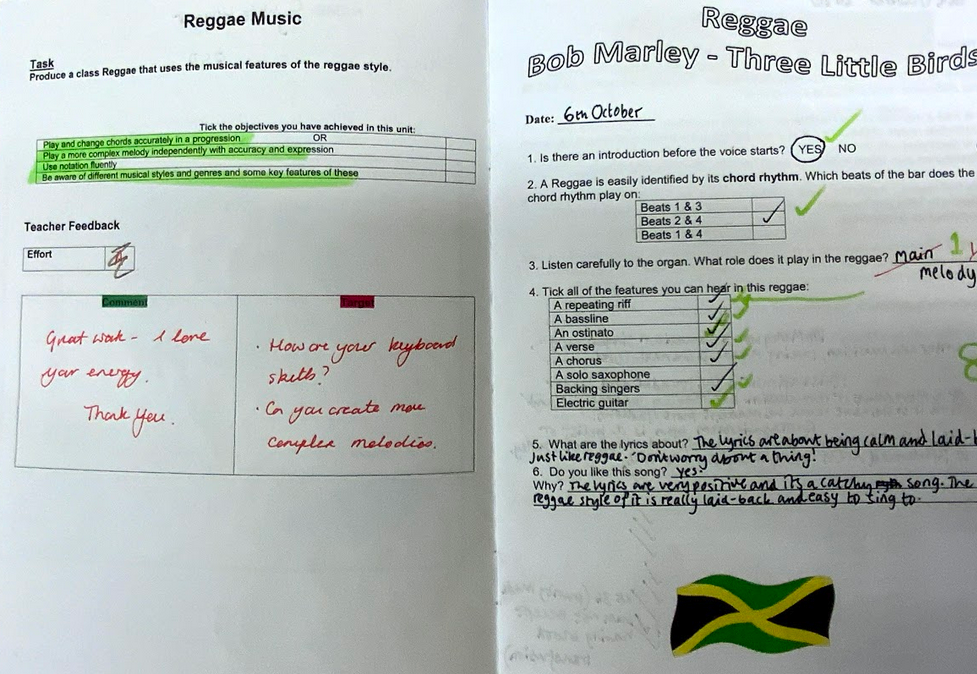 Reggae Music
Task
Produce a class Reggae that uses the musical features of the reggae style.
Tick the objectives you have achieved in this unit:
Play and change chords accurately in a progression OR
Play a more complex melody independently with accuracy and expression
Use notation fluently
Be aware of different musical styles and genres and some key features of these
Teacher Feedback
Effort
Comment
Great work - I love
your energy.
Thank you.
Target
· How are your keyboard
skills?
· Can you create more
complex melodies.
Reggae
Bob Marley - Three Little Birds
Date: 6th October
1. Is there an introduction before the voice starts? YES NO
2. A Reggae is easily identified by its chord rhythm. Which beats of the bar does the
chord rhythm play on:
Beats 1 & 3
Beats 2 & 4
Beats 1 & 4
3. Listen carefully to the organ. What role does it play in the reggae? main
melody
4. Tick all of the features you can hear in this reggae:
A repeating riff
A bassline
An ostinato
A verse
A chorus
A solo saxophone
Backing singers
Electric guitar
5. What are the lyrics about? The lyrics are about being calm and laid-
Just like reggae. "Don't worry about a thing!
6. Do you like this song? yes.
Why? The lyrics are very positive and its a catchy song. The
reggae style of it is really laid-back and easy to ting to.